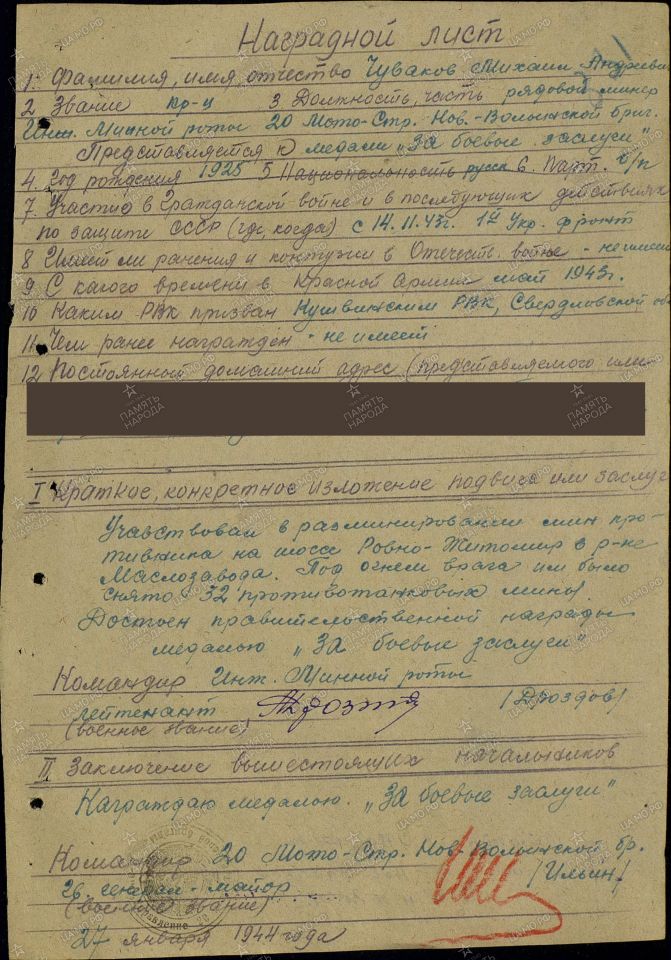 Наградной лист
1. Фамилия, имя, отчество Чуваков Михаил Андреевич
2 Звание кр-ц 3 Должность, часть рядовой минер
Инж. Минной роты 20 Мото-Стр. Нов.-Волынской бриг.
Представляется к медали "За боевые заслуги"
4. Год рождения 1925 5 Национальность русск 6. Парт. б/п
7. Участие в Гражданской войне и в последующих действиях
по защите СССР (где, когда) с 14.11.43г. 1й Укр. фронт
8 Имеет ли ранения и контузии в Отечеств. войне - не имеет
9 С какого времени в Красной Армии май 1943г.
10 Каким РВК призван Кушвинским РВК, Свердловской об
11 Чем ранее награжден - не имеет
12 Постоянный домашний адрес (представляемого или
I Краткое, конкретное изложение подвига или заслуг
Участвовал в разминировании мин про-
тивника на шоссе Ровно-Житомир в р-не
Маслозавода. Под огнем врага им было
снято 32 противотанковых мины.
Достоен правительственной награды
медалью "За боевые заслуги"
Командир Инж. Минной роты
лейтенант Дроздов /Дроздов/
(военное звание)
II Заключение вышестоящих начальников
Награждаю медалью "За боевые заслуги"
Командир 20 Мото-Стр. Нов-Волынской бр.
гв. генерал-майор /Ильин/
(военное звание)
27 января 1944 года
ПАМЯТЬ НАРОДА
ЦАМО.РФ